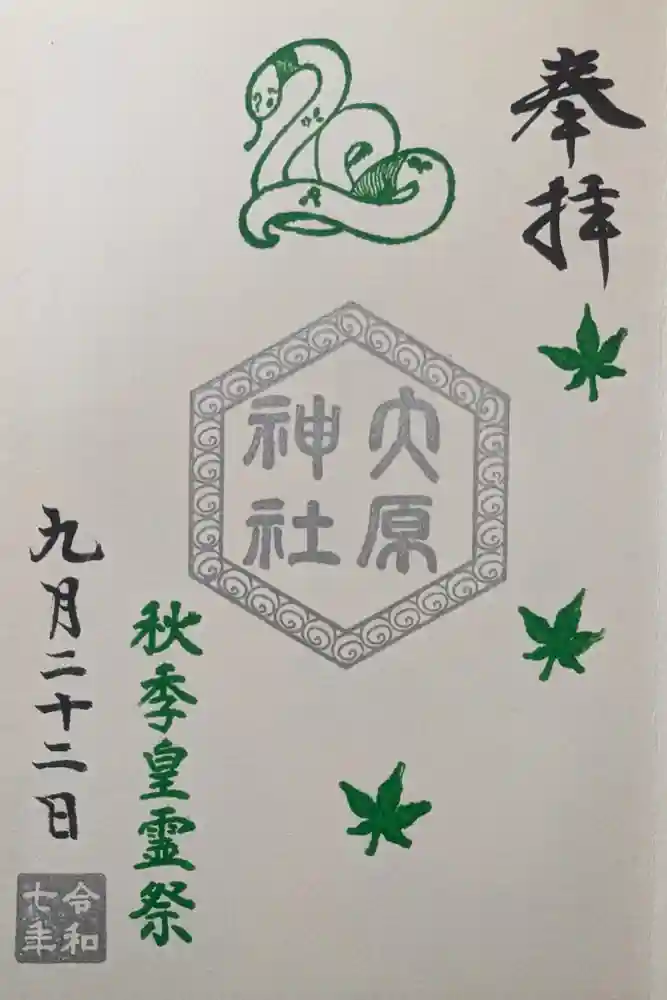 奉拝
大原
神社
秋季皇霊祭
九月二十二日
令和
七年